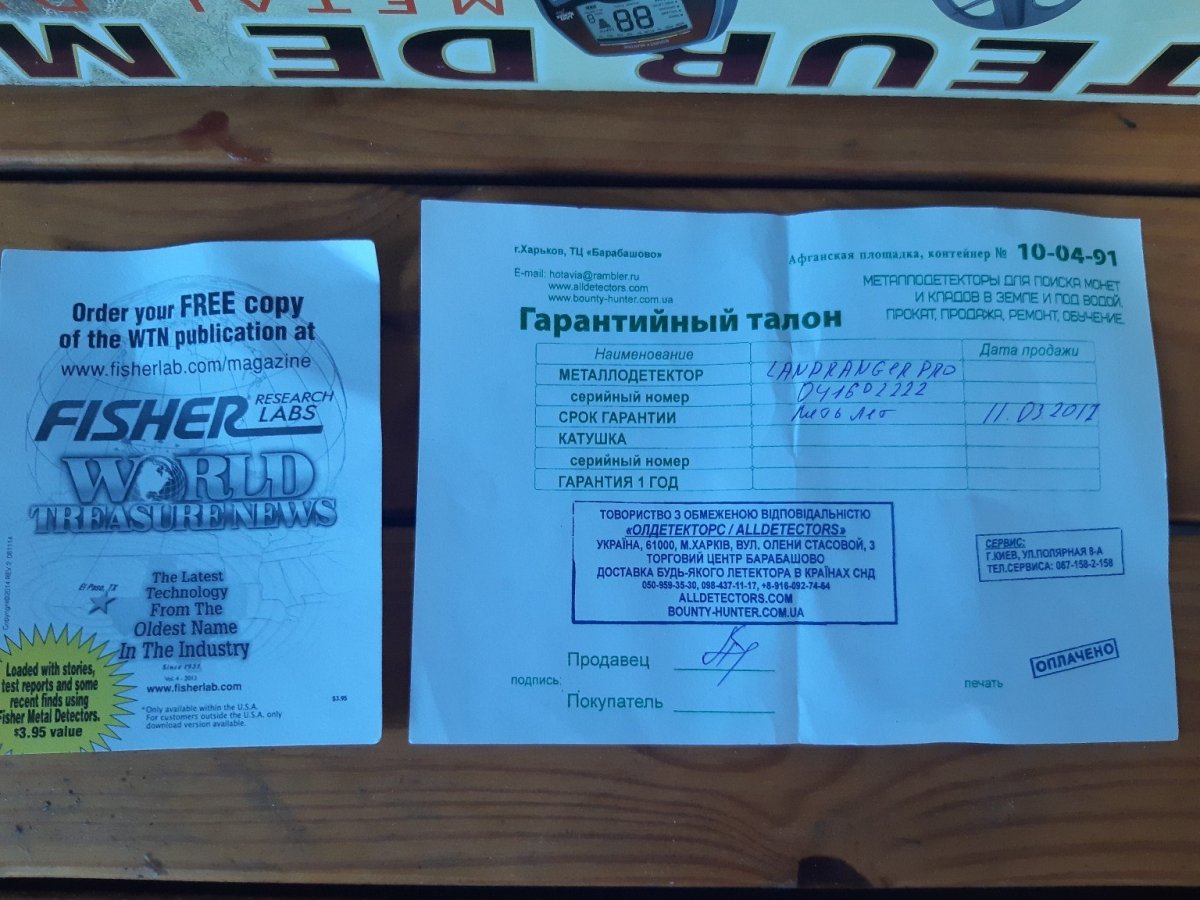 METAL
88
TEUR DE M
Order your FREE copy
of the WTN publication at
www.fisherlab.com/magazine
FISHER RESEARCH LABS
WORLD
TREASURE NEWS
El Paso, TX
The Latest
Technology
From The
Oldest Name
In The Industry
Since 1931
Vol. 4 - 2013
www.fisherlab.com
*Only available within the U.S.A.
For customers outside the U.S.A. only
download version available.
$3.95
Loaded with stories,
test reports and some
recent finds using
Fisher Metal Detectors.
$3.95 value
г.Харьков, ТЦ «Барабашово»
E-mail: hotavia@rambler.ru
www.alldetectors.com
www.bounty-hunter.com.ua
Афганская площадка, контейнер № 10-04-91
МЕТАЛЛОДЕТЕКТОРЫ ДЛЯ ПОИСКА МОНЕТ
И КЛАДОВ В ЗЕМЛЕ И ПОД ВОДОЙ.
ПРОКАТ, ПРОДАЖА, РЕМОНТ, ОБУЧЕНИЕ.
Гарантийный талон
Наименование Дата продажи
МЕТАЛЛОДЕТЕКТОР LANDRANGER PRO
серийный номер 041602222
СРОК ГАРАНТИИ пять лет 11.03.2017
КАТУШКА
серийный номер
ГАРАНТИЯ 1 ГОД
ТОВОРИСТВО З ОБМЕЖЕНОЮ ВІДПОВІДАЛЬНІСТЮ
«ОЛДЕТЕКТОРС / ALLDETECTORS»
УКРАЇНА, 61000, М.ХАРКІВ, ВУЛ. ОЛЕНИ СТАСОВОЙ, 3
ТОРГОВИЙ ЦЕНТР БАРАБАШОВО
ДОСТАВКА БУДЬ-ЯКОГО ЛЕТЕКТОРА В КРАЇНАХ СНД
050-959-35-30, 098-437-11-17, +8-916-092-74-64
ALLDETECTORS.COM
BOUNTY-HUNTER.COM.UA
СЕРВИС:
Г.КИЕВ, УЛ.ПОЛЯРНАЯ 8-А
ТЕЛ.СЕРВИСА: 067-158-2-158
Продавец
подпись:
Покупатель
ОПЛАЧЕНО
печать